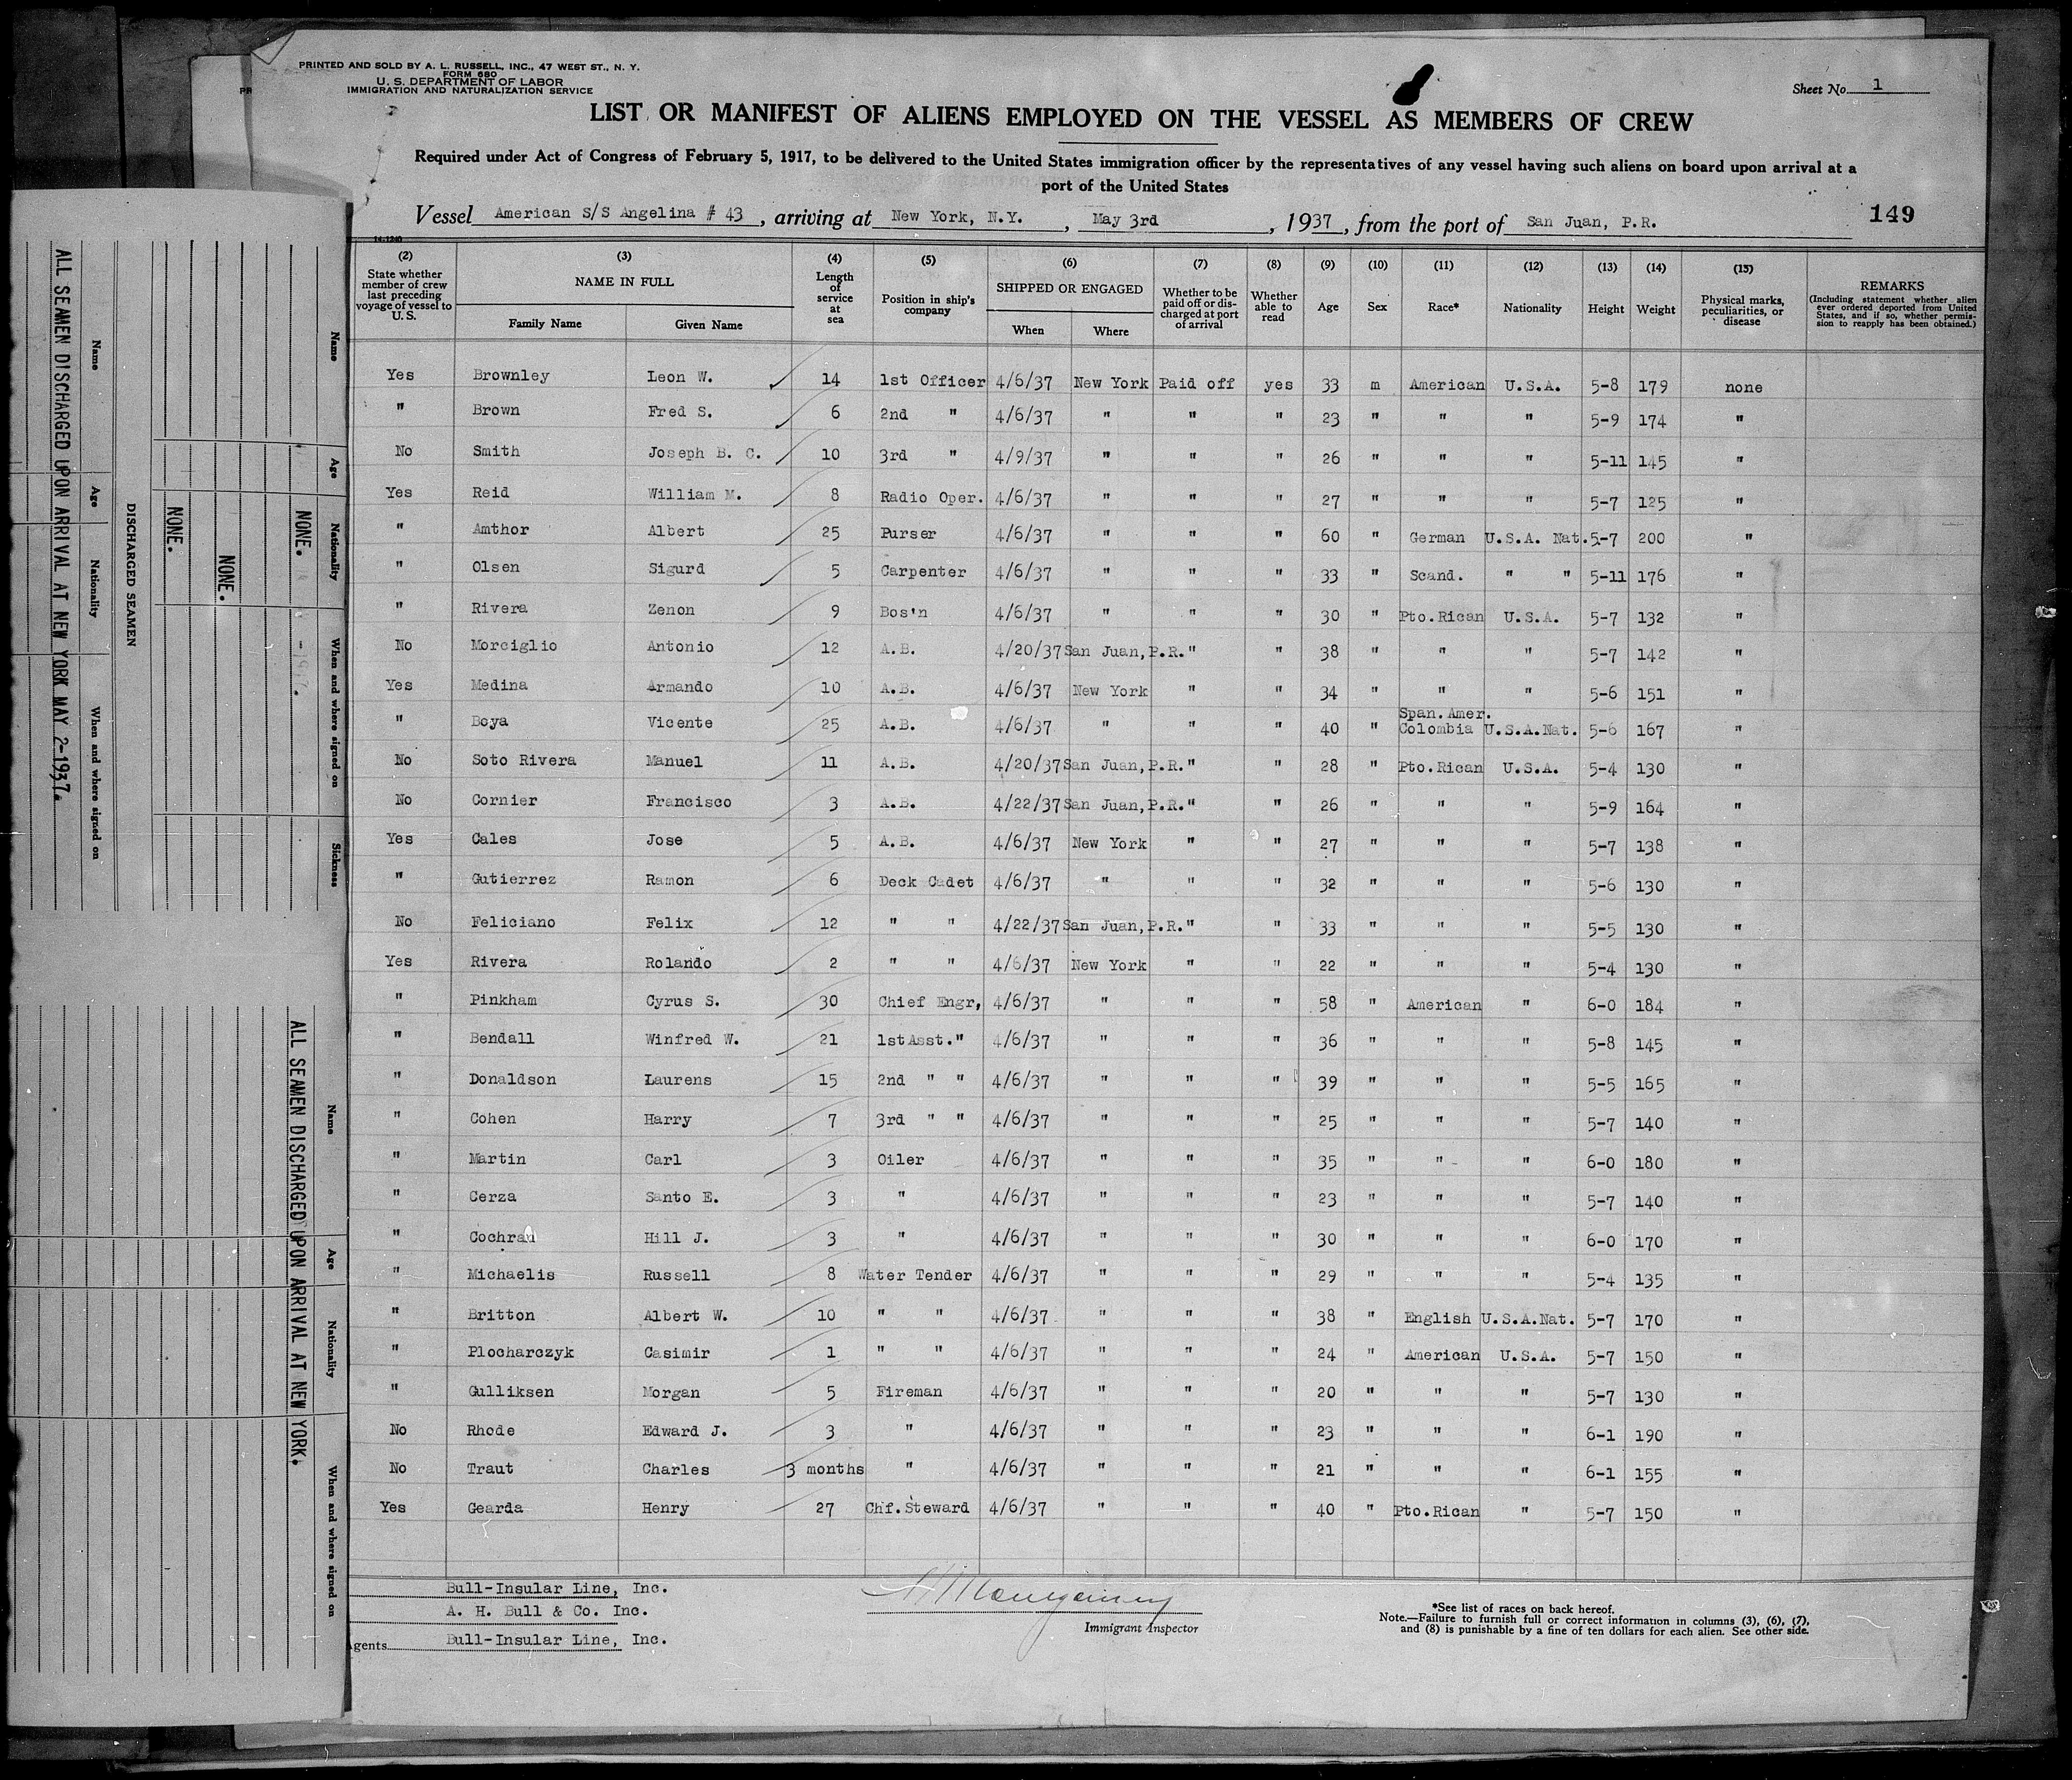 PRINTED AND SOLD BY A. L. RUSSELL, INC., 47 WEST ST., N. Y.
FORM 680
U. S. DEPARTMENT OF LABOR
IMMIGRATION AND NATURALIZATION SERVICE
Sheet No. 1
LIST OR MANIFEST OF ALIENS EMPLOYED ON THE VESSEL AS MEMBERS OF CREW
Required under Act of Congress of February 5, 1917, to be delivered to the United States immigration officer by the representatives of any vessel having such aliens on board upon arrival at a
port of the United States
Vessel American S/S Angelina # 43, arriving at New York, N.Y., May 3rd, 1937, from the port of San Juan, P.R.
149
14-1240
(2) State whether member of crew last preceding voyage of vessel to U.S.
(3) NAME IN FULL Family Name Given Name
(4) Length of service at sea
(5) Position in ship's company
(6) SHIPPED OR ENGAGED When Where
(7) Whether to be paid off or discharged at port of arrival
(8) Whether able to read
(9) Age
(10) Sex
(11) Race*
(12) Nationality
(13) Height
(14) Weight
(15) Physical marks, peculiarities, or disease
REMARKS (Including statement whether alien ever ordered deported from United States, and if so, whether permission to reapply has been obtained.)
Yes Brownley Leon W. 14 1st Officer 4/6/37 New York Paid off yes 33 m American U.S.A. 5-8 179 none
" Brown Fred S. 6 2nd " 4/6/37 " " " 23 " " " 5-9 174 "
No Smith Joseph B. C. 10 3rd " 4/9/37 " " " 26 " " " 5-11 145 "
Yes Reid William M. 8 Radio Oper. 4/6/37 " " " 27 " " " 5-7 125 "
" Amthor Albert 25 Purser 4/6/37 " " " 60 " German U.S.A. Nat. 5-7 200 "
" Olsen Sigurd 5 Carpenter 4/6/37 " " " 33 " Scand. " " 5-11 176 "
" Rivera Zenon 9 Bos'n 4/6/37 " " " 30 " Pto.Rican U.S.A. 5-7 132 "
No Morciglio Antonio 12 A.B. 4/20/37 San Juan, P.R. " " 38 " " " 5-7 142 "
Yes Medina Armando 10 A.B. 4/6/37 New York " " 34 " " " 5-6 151 "
" Boya Vicente 25 A.B. 4/6/37 " " " 40 " Span.Amer. Colombia U.S.A.Nat. 5-6 167 "
No Soto Rivera Manuel 11 A.B. 4/20/37 San Juan, P.R. " " 28 " Pto.Rican U.S.A. 5-4 130 "
No Cornier Francisco 3 A.B. 4/22/37 San Juan, P.R. " " 26 " " " 5-9 164 "
Yes Cales Jose 5 A.B. 4/6/37 New York " " 27 " " " 5-7 138 "
" Gutierrez Ramon 6 Deck Cadet 4/6/37 " " " 32 " " " 5-6 130 "
No Feliciano Felix 12 " " 4/22/37 San Juan, P.R. " " 33 " " " 5-5 130 "
Yes Rivera Rolando 2 " " 4/6/37 New York " " 22 " " " 5-4 130 "
" Pinkham Cyrus S. 30 Chief Engr, 4/6/37 " " " 58 " American " 6-0 184 "
" Bendall Winfred W. 21 1st Asst. " 4/6/37 " " " 36 " " " 5-8 145 "
" Donaldson Laurens 15 2nd " " 4/6/37 " " " 39 " " " 5-5 165 "
" Cohen Harry 7 3rd " " 4/6/37 " " " 25 " " " 5-7 140 "
" Martin Carl 3 Oiler 4/6/37 " " " 35 " " " 6-0 180 "
" Cerza Santo E. 3 " 4/6/37 " " " 23 " " " 5-7 140 "
" Cochran Hill J. 3 " 4/6/37 " " " 30 " " " 6-0 170 "
" Michaelis Russell 8 Water Tender 4/6/37 " " " 29 " " " 5-4 135 "
" Britton Albert W. 10 " " 4/6/37 " " " 38 " English U.S.A.Nat. 5-7 170 "
" Plocharczyk Casimir 1 " " 4/6/37 " " " 24 " American U.S.A. 5-7 150 "
" Gulliksen Morgan 5 Fireman 4/6/37 " " " 20 " " " 5-7 130 "
No Rhode Edward J. 3 " 4/6/37 " " " 23 " " " 6-1 190 "
No Traut Charles 3 months " 4/6/37 " " " 21 " " " 6-1 155 "
Yes Gearda Henry 27 Chf. Steward 4/6/37 " " " 40 " Pto.Rican " 5-7 150 "
Bull-Insular Line, Inc.
A. H. Bull & Co. Inc.
gents Bull-Insular Line, Inc.
Immigrant Inspector
*See list of races on back hereof.
Note.—Failure to furnish full or correct information in columns (3), (6), (7),
and (8) is punishable by a fine of ten dollars for each alien. See other side.
Name Age Nationality When and where signed on Sickness
NONE.
NONE.
NONE.
DISCHARGED SEAMEN
Name Age Nationality When and where signed on
ALL SEAMEN DISCHARGED UPON ARRIVAL AT NEW YORK MAY 2-1937.
Name Age Nationality When and where signed on
ALL SEAMEN DISCHARGED UPON ARRIVAL AT NEW YORK.